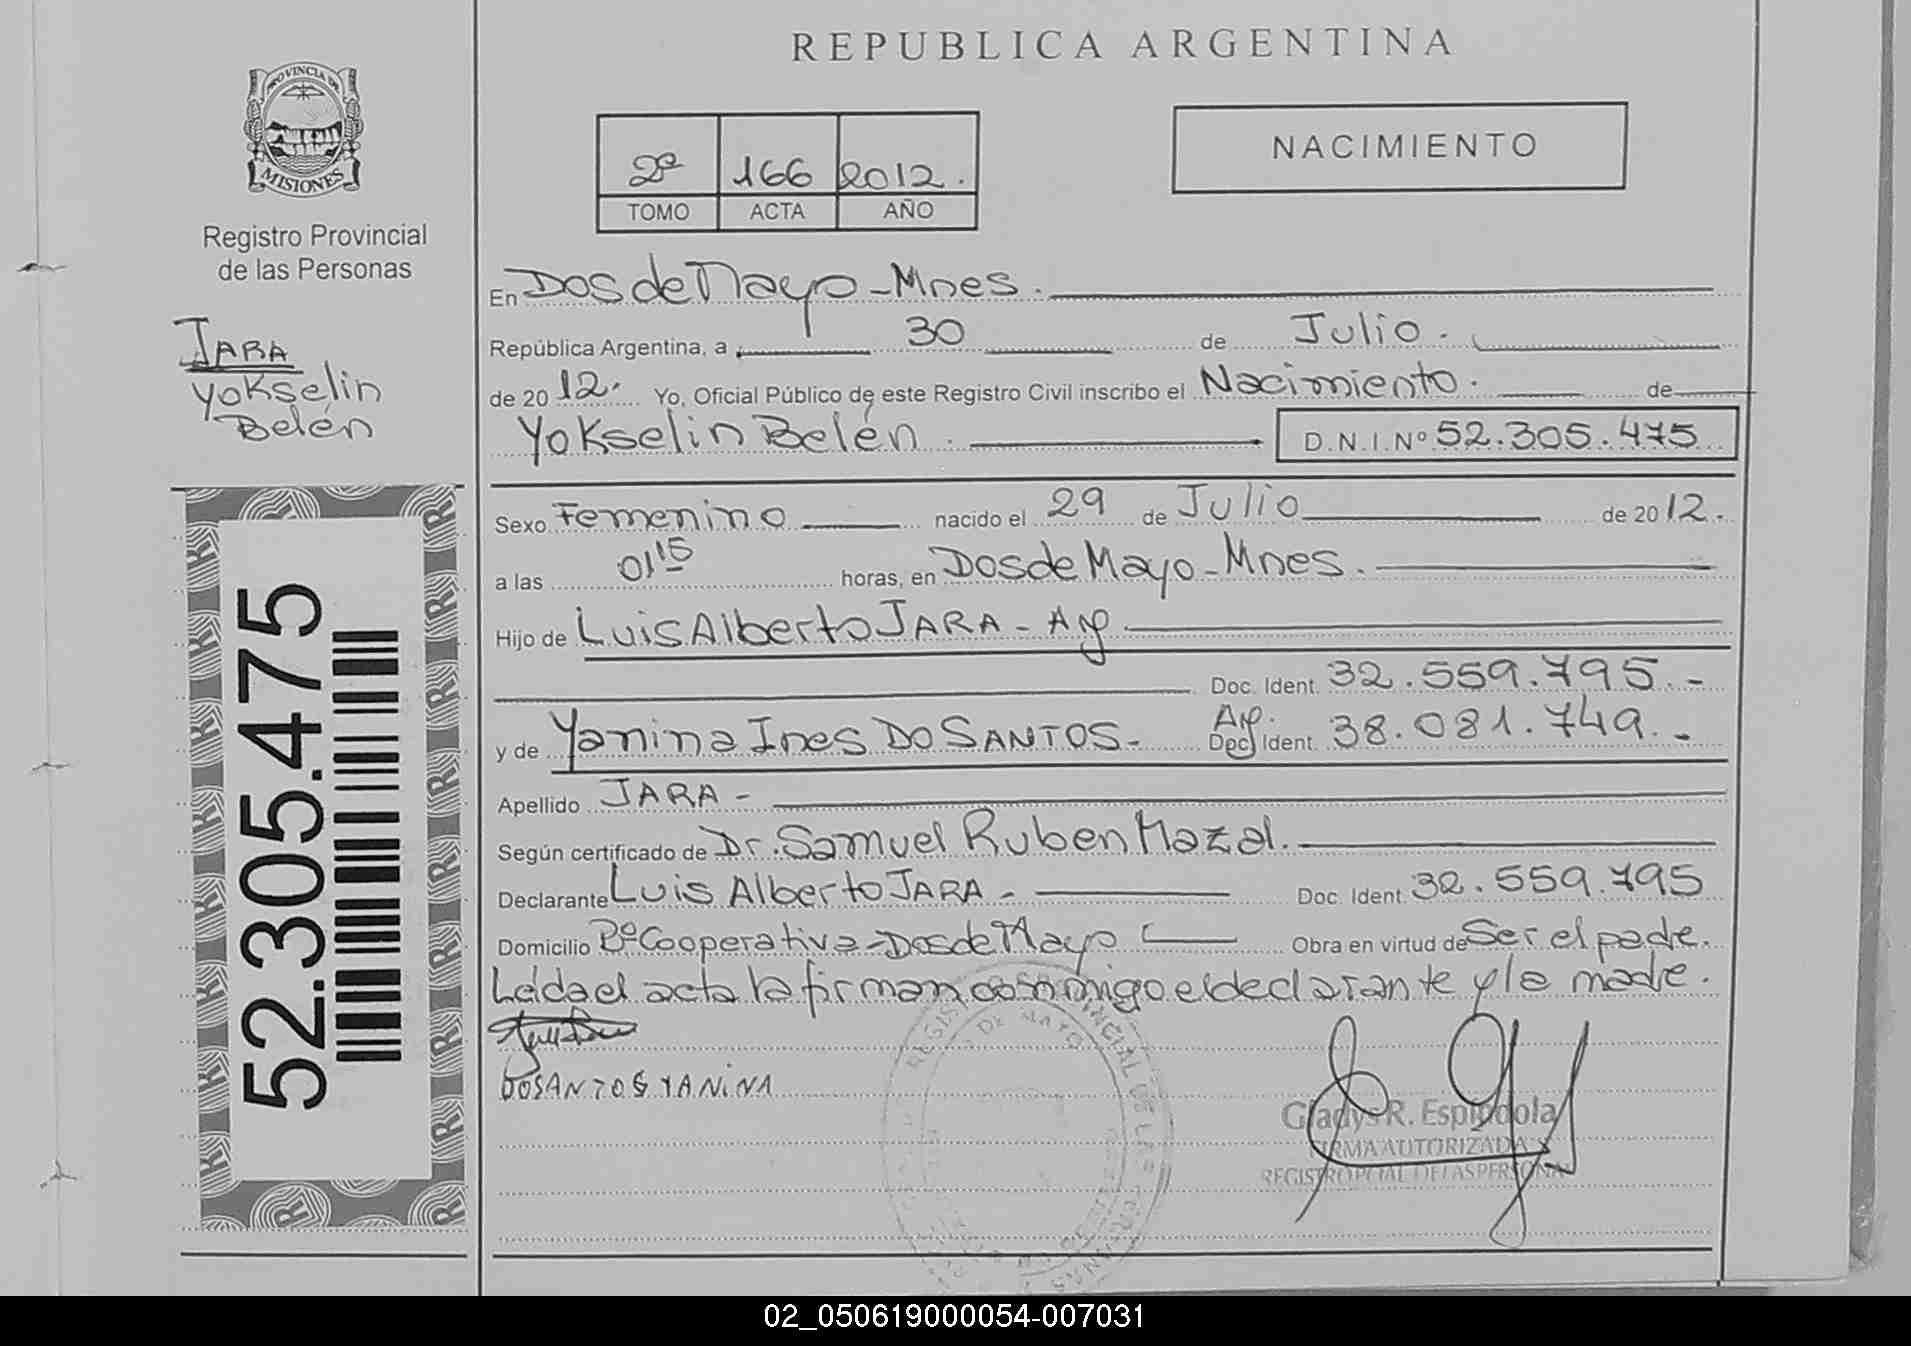 REPUBLICA ARGENTINA
PROVINCIA DE
MISIONES
Registro Provincial
de las Personas
JARA
Yokselin
Belén
52.305.475
2º 166 2012.
TOMO ACTA AÑO
NACIMIENTO
En Dos de Mayo - Mnes.
República Argentina, a 30 de Julio.
de 2012. Yo, Oficial Público de este Registro Civil inscribo el Nacimiento. de
Yokselin Belén. D.N.I. Nº 52.305.475
Sexo Femenino nacido el 29 de Julio de 2012.
a las 01 15 horas, en Dos de Mayo - Mnes.
Hijo de Luis Alberto JARA - Arg
Doc. Ident. 32.559.795.-
y de Yanina Ines DO SANTOS - Arg. Doc. Ident. 38.081.749.-
Apellido JARA -
Según certificado de Dr. Samuel Ruben Mazal.
Declarante Luis Alberto JARA - Doc. Ident. 32.559.795
Domicilio Bº Cooperativa - Dos de Mayo Obra en virtud de Ser el padre.
Leída el acta la firman conmigo el declarante y la madre.
DOSANTOS YANiNA
REGISTRO PROVINCIAL DE LAS PERSONAS
DE MAYO
Gladys R. Espindola
FIRMA AUTORIZADA
REGISTRO PCIAL DE LAS PERSONAS
02_050619000054-007031